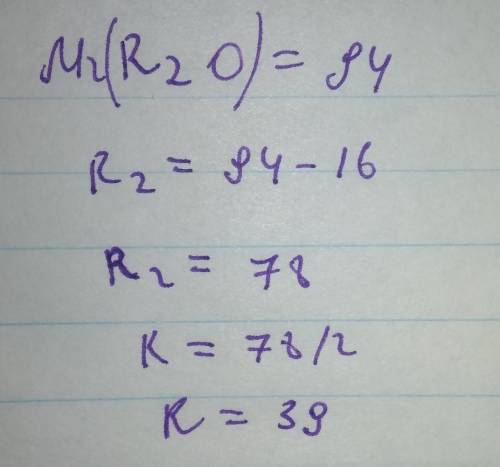 Mr(R₂O) = 94
R₂ = 94 - 16
R₂ = 78
R = 78/2
R = 39